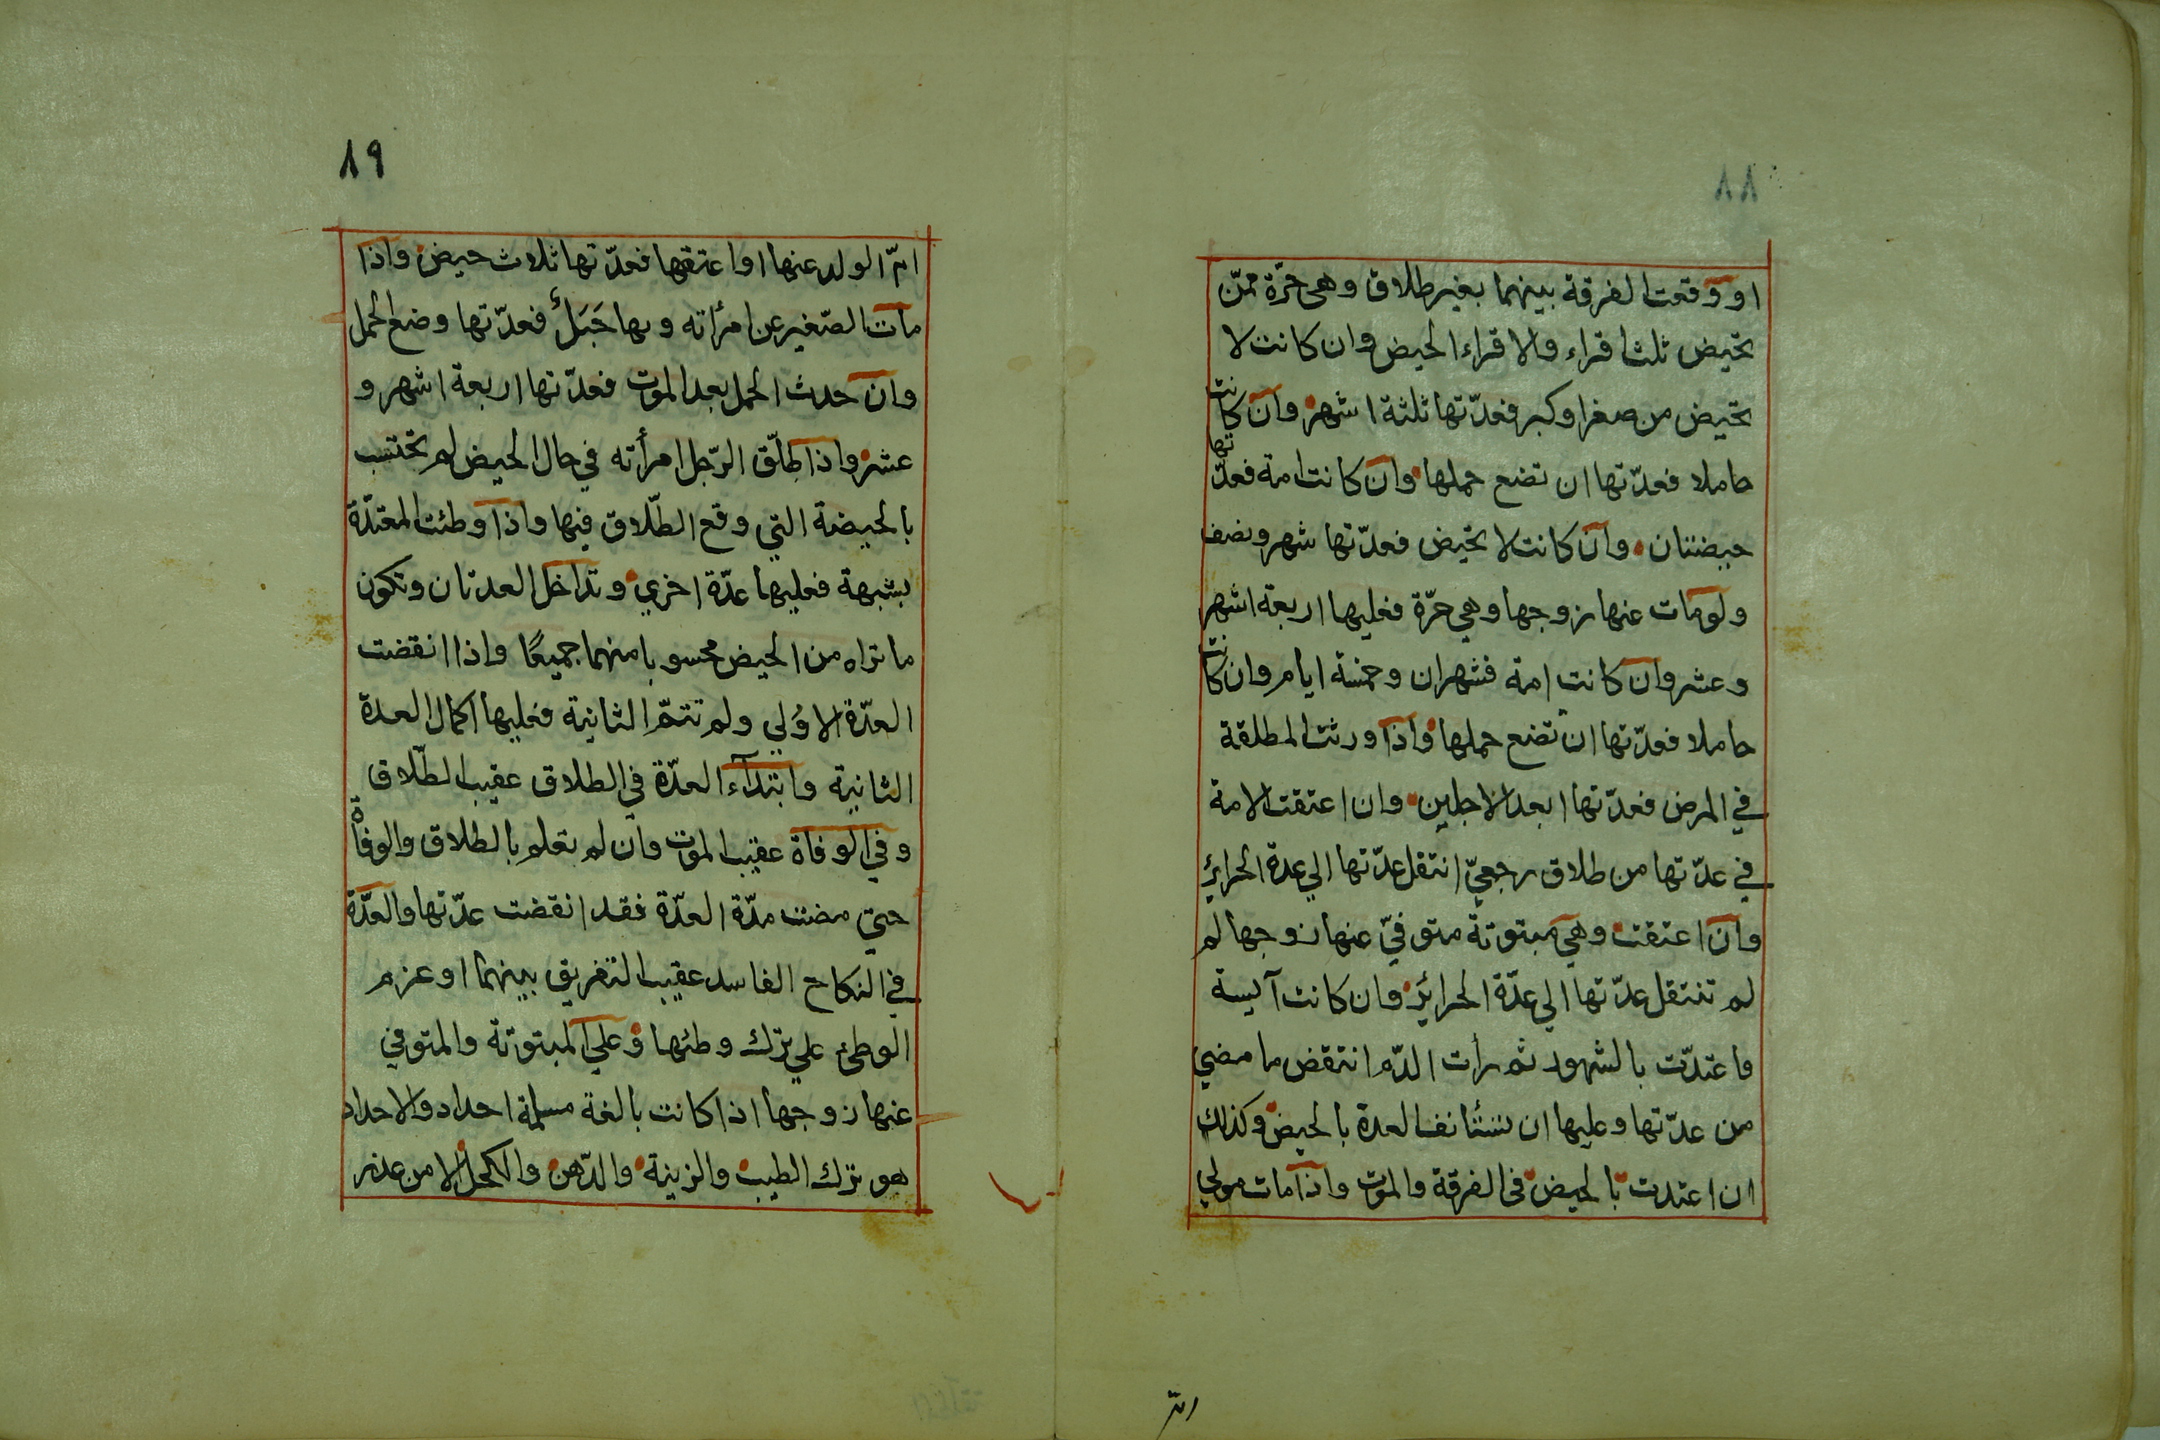 او وقعت الفرقة بينهما بغير طلاق وهى حرّة ممّن
تحيض ثلثا قراء والاقراء الحيض وان كانت لا
تحيض من صغر او كبر فعدّتها ثلثة اشهر وان كانت
حاملا فعدّتها ان تضع حملها وان كانت امة فعدّتها
حيضتان وان كانت لا تحيض فعدّتها شهر ونصف
ولو مات عنها زوجها وهي حرّة فعليها اربعة اشهر
وعشر وان كانت امة فشهران وخمسة ايام وان كانت
حاملا فعدّتها ان تضع حملها واذا ورثت المطلقة
في المرض فعدّتها ابعد الاجلين وان اعتقت الامة
في عدّتها من طلاق رجعيّ انتقل عدّتها الي عدة الحرائر
وان اعتقت وهي مبتوتة متوفيّ عنها زوجها لم
لم تنتقل عدّتها الي عدّة الحرائر وان كانت آيسة
فاعتدّت بالشهور ثم رأت الدّم انتقض ما مضي
من عدّتها وعليها ان تستأنف العدة بالحيض وكذلك
ان اعتدت بالحيض في الفرقة والموت واذا مات مولي
٨٩
امّ الولد عنها او اعتقها فعدّتها ثلاث حيض واذا
مات الصّغير عن امرأته وبها حَبَلٌ فعدّتها وضع الحمل
وان حدث الحمل بعد الموت فعدّتها اربعة اشهر و
عشر واذا طلّق الرّجل امرأته في حال الحيض لم تحتسب
بالحيضة التي وقع الطّلاق فيها واذا وطئت المعتدّة
بشبهة فعليها عدّة اخري وتداخل العدتان وتكون
ما تراه من الحيض محسوبا منهما جميعًا واذا انقضت
العدّة الاوُلي ولم تتمّ الثانية فعليها اكمال العدة
الثانية وابتدآء العدّة في الطلاق عقيب الطّلاق
وفي الوفاة عقيب الموت وان لم تعلم بالطلاق والوفاة
حتي مضت مدّة العدّة فقد انقضت عدّتها والعدّة
في النكاح الفاسد عقيب التفريق بينهما او عزم
الوطئ علي ترك وطئها وعلي المبتوتة والمتوفي
عنها زوجها اذا كانت بالغة مسلمة احداد والاحداد
هو ترك الطيب والزينة والدّهن والكحل الا من عذر